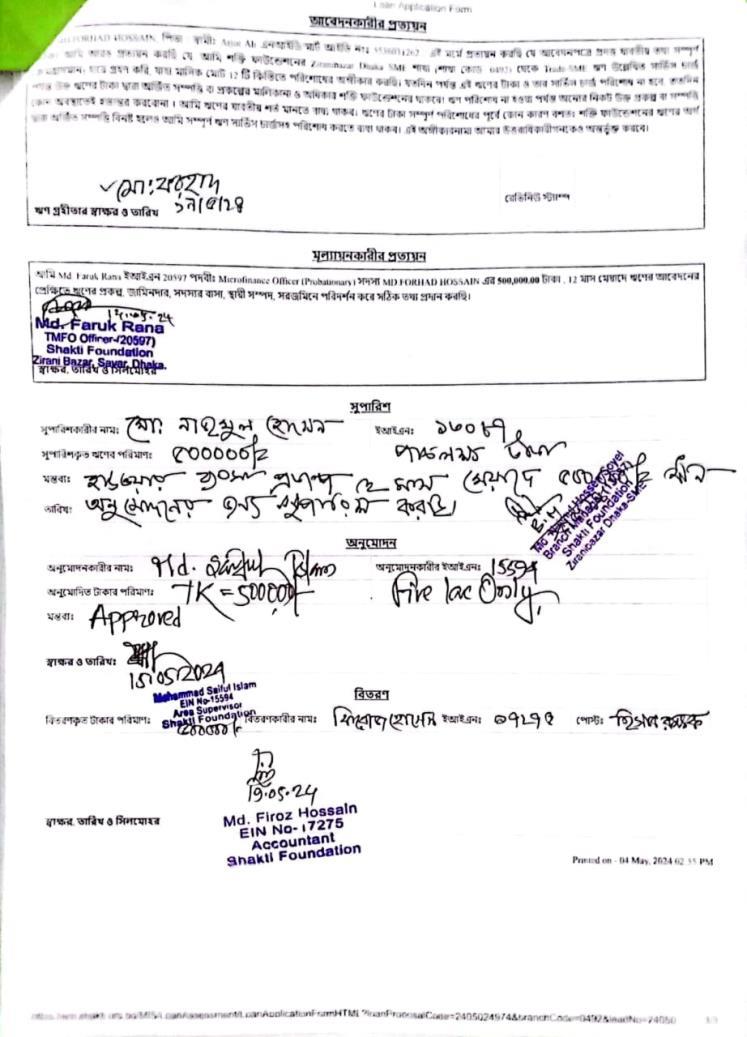 Loan Application Form
আবেদনকারীর প্রত্যয়ন
FORHAD HOSSAIN, পিতা / স্বামী: Ali এনআইডি/স্মার্ট আইডি নং: এই মর্মে প্রত্যয়ন করছি যে আবেদনপত্রে প্রদত্ত যাবতীয় তথ্য সম্পূর্ণ
আমি আরও প্রত্যয়ন করছি যে আমি শক্তি ফাউন্ডেশনের Ziranibazar Dhaka SME শাখা (শাখা কোড 0492) থেকে Trade-SME ঋণ উল্লেখিত সার্ভিস চার্জ
গ্রহণ করি, যাহা মাসিক মোট 12 টি কিস্তিতে পরিশোধের অঙ্গীকার করছি। যতদিন পর্যন্ত এই ঋণের টাকা ও তার সার্ভিস চার্জ পরিশোধ না হবে, ততদিন
উক্ত ঋণের টাকা দ্বারা অর্জিত সম্পত্তি বা প্রকল্পের মালিকানা ও অধিকার শক্তি ফাউন্ডেশনের থাকবে। ঋণ পরিশোধ না হওয়া পর্যন্ত অন্যের নিকট উক্ত প্রকল্প বা সম্পত্তি
কোন অবস্থাতেই হস্তান্তর করবোনা। আমি ঋণের যাবতীয় শর্ত মানতে বাধ্য থাকব। ঋণের টাকা সম্পূর্ণ পরিশোধের পূর্বে কোন কারণ বশতঃ শক্তি ফাউন্ডেশনের ঋণের অর্থ
দ্বারা অর্জিত সম্পত্তি বিনষ্ট হলেও আমি সম্পূর্ণ ঋণ সার্ভিস চার্জসহ পরিশোধ করতে বাধ্য থাকব। এই অঙ্গীকারনামা আমার উত্তরাধিকারীগনকেও অন্তর্ভুক্ত করবে।
মো: ফরহাদ
ঋণ গ্রহীতার স্বাক্ষর ও তারিখ
রেভিনিউ স্ট্যাম্প
মূল্যায়নকারীর প্রত্যয়ন
আমি Md. Faruk Rana ইআইএন 20597 পদবীঃ Microfinance Officer (Probationary) সদস্য MD FORHAD HOSSAIN এর 500,000.00 টাকা, 12 মাস মেয়াদে ঋণের আবেদনের
প্রেক্ষিতে ঋণের প্রকল্প, জামিনদার, সদস্যর বাসা, স্থায়ী সম্পদ, সরজমিনে পরিদর্শন করে সঠিক তথ্য প্রদান করছি।
Md. Faruk Rana
TMFO Officer-(20597)
Shakti Foundation
Zirani Bazar, Savar, Dhaka.
স্বাক্ষর, তারিখ ও সিলমোহর
সুপারিশ
সুপারিশকারীর নাম: মো: নাহমুল হোসেন ইআইএন: ১৩০৮৭
সুপারিশকৃত ঋণের পরিমাণ: ৫০০০০০/= পাঁচ লক্ষ টাকা
মন্তব্য: হার্ডওয়ার ব্যবসা প্রকল্পে ১২ মাস মেয়াদে
তারিখ: অনুমোদনের জন্য সুপারিশ করছি।
Branch Manager
Shakti Foundation
Ziranibazar Dhaka-SME
অনুমোদন
অনুমোদনকারীর নাম: Md. Islam অনুমোদনকারীর ইআইএন: 15594
অনুমোদিত টাকার পরিমাণ: TK = 500000/- Five lac Only,
মন্তব্য: Approved
স্বাক্ষর ও তারিখঃ
15/05/2024
Mohammad Saiful Islam
EIN No-15594
Area Supervisor
Shakti Foundation
বিতরণ
বিতরণকৃত টাকার পরিমাণ: ৫০০০০০/- বিতরণকারীর নাম: ফিরোজ হোসেন ইআইএন: ১৭২৭৫ পোস্ট: হিসাব রক্ষক
19.05.24
স্বাক্ষর, তারিখ ও সিলমোহর
Md. Firoz Hossain
EIN No-17275
Accountant
Shakti Foundation
Printed on - 04 May, 2024 02:35 PM